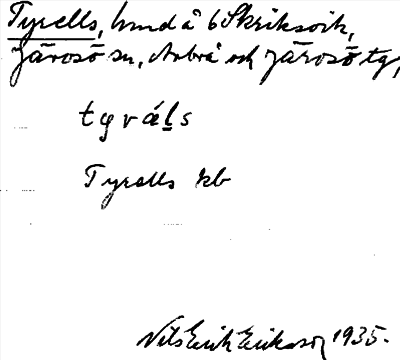 Tyrells, hmd å 6 Skriksvik,
Järosö sn, Arbrå och Järosö tg,
tyváls
Tyrells kb
Nils Erik Erikson 1935.